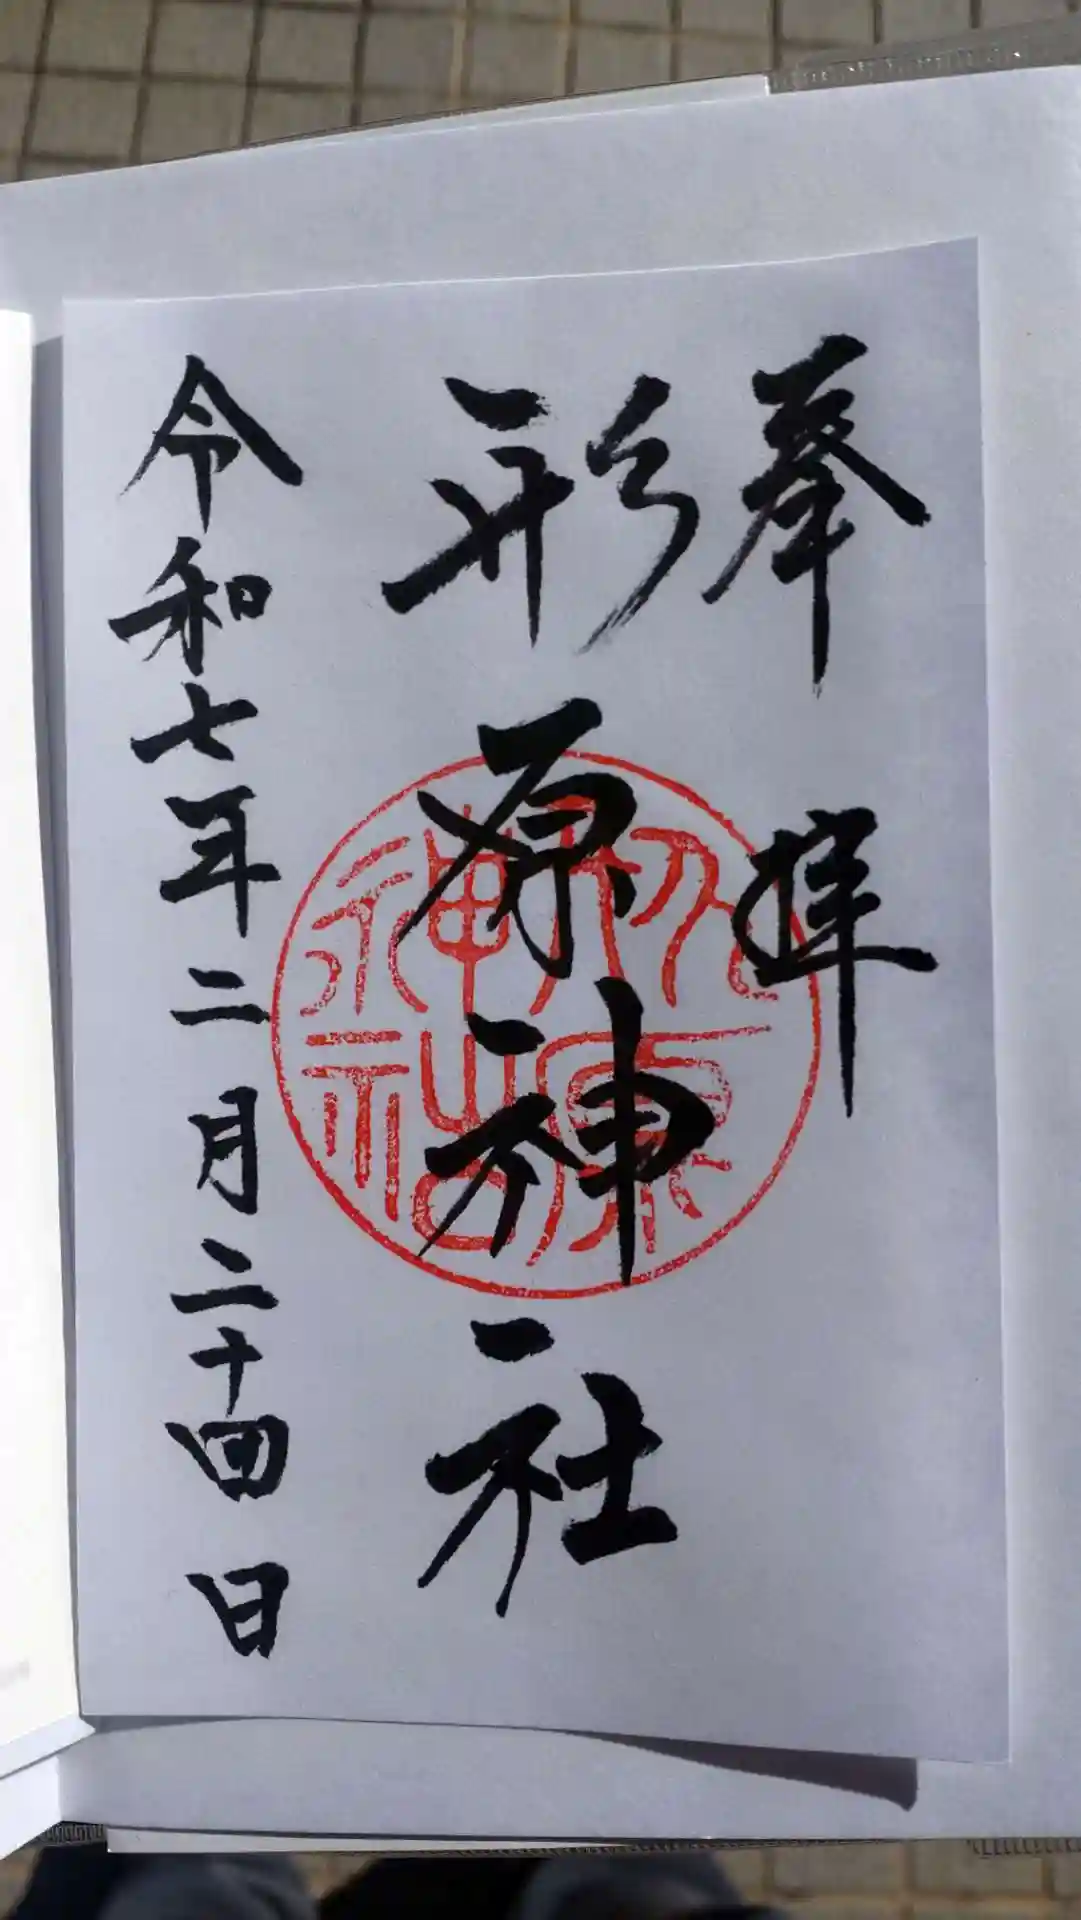 奉拝
形原神社
令和七年二月二十四日